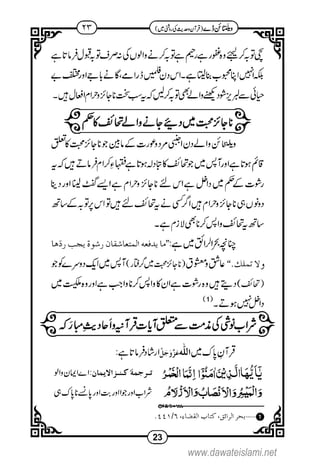 ۲۳ ویلنٹائن ڈے (قرآن وحدیث کی روشنی میں)
سچی توبہ کر لیجئے وہ غفور و رحیم ہے توبہ کرنے والوں کی نہ صرف توبہ قبول فرماتا ہے
بلکہ انہیں اپنا محبوب بنا لیتا ہے۔ اس دن فلمیں، ڈرامے، گانے باجے اور مختلف بے
حیائی سے لبریز شوز دیکھنے والے بھی توبہ کریں کہ یہ سب سخت ناجائز و حرام افعال ہیں۔
ناجائز محبت میں دیئے جانے والے تحائف کا حکم
ویلنٹائن والے دن اجنبی مرد و عورت کے مابین جو ناجائز محبت کا تعلق
قائم ہوتا ہے اور آپس میں جو تحائف کا تبادلہ ہوتا ہے فقہاءِ کرام فرماتے ہیں کہ یہ
رشوت کے حکم میں داخل ہے اس لئے ناجائز و حرام ہے ایسے گفٹ لینا اور دینا
دونوں ہی ناجائز و حرام ہیں اگر کسی نے یہ تحائف لئے ہیں تو اس پر توبہ کے ساتھ
ساتھ یہ تحائف واپس کرنا بھی لازم ہے۔
چنانچہ بحر الرائق میں ہے: ”ما يدفعه المتعاشقان رشوة يجب ردها
ولا تملك۔“ عاشق و معشوق (ناجائز محبت میں گرفتار) آپس میں ایک دوسرے کو جو
(تحائف) دیتے ہیں وہ رشوت ہے ان کا واپس کرنا واجب ہے اور وہ ملکیت میں
داخل نہیں ہوتے۔ (1)
شراب نوشی کی مذمت سے متعلق آیاتِ قرآنیہ و احادیثِ مبارکہ
قرآنِ پاک میں اللہ عَزَّوَجَلَّ ارشاد فرماتا ہے:
یٰۤاَیُّهَا الَّذِیْنَ اٰمَنُوْۤا اِنَّمَا الْخَمْرُ ترجمۂ کنز الایمان: اے ایمان والو
وَ الْمَیْسِرُ وَ الْاَنْصَابُ وَ الْاَزْلَامُ شراب اور جوا اور بت اور پانسے ناپاک ہی
1 ......بحر الرائق، كتاب القضاء، ٦/٤٤١.
23
www.dawateislami.net